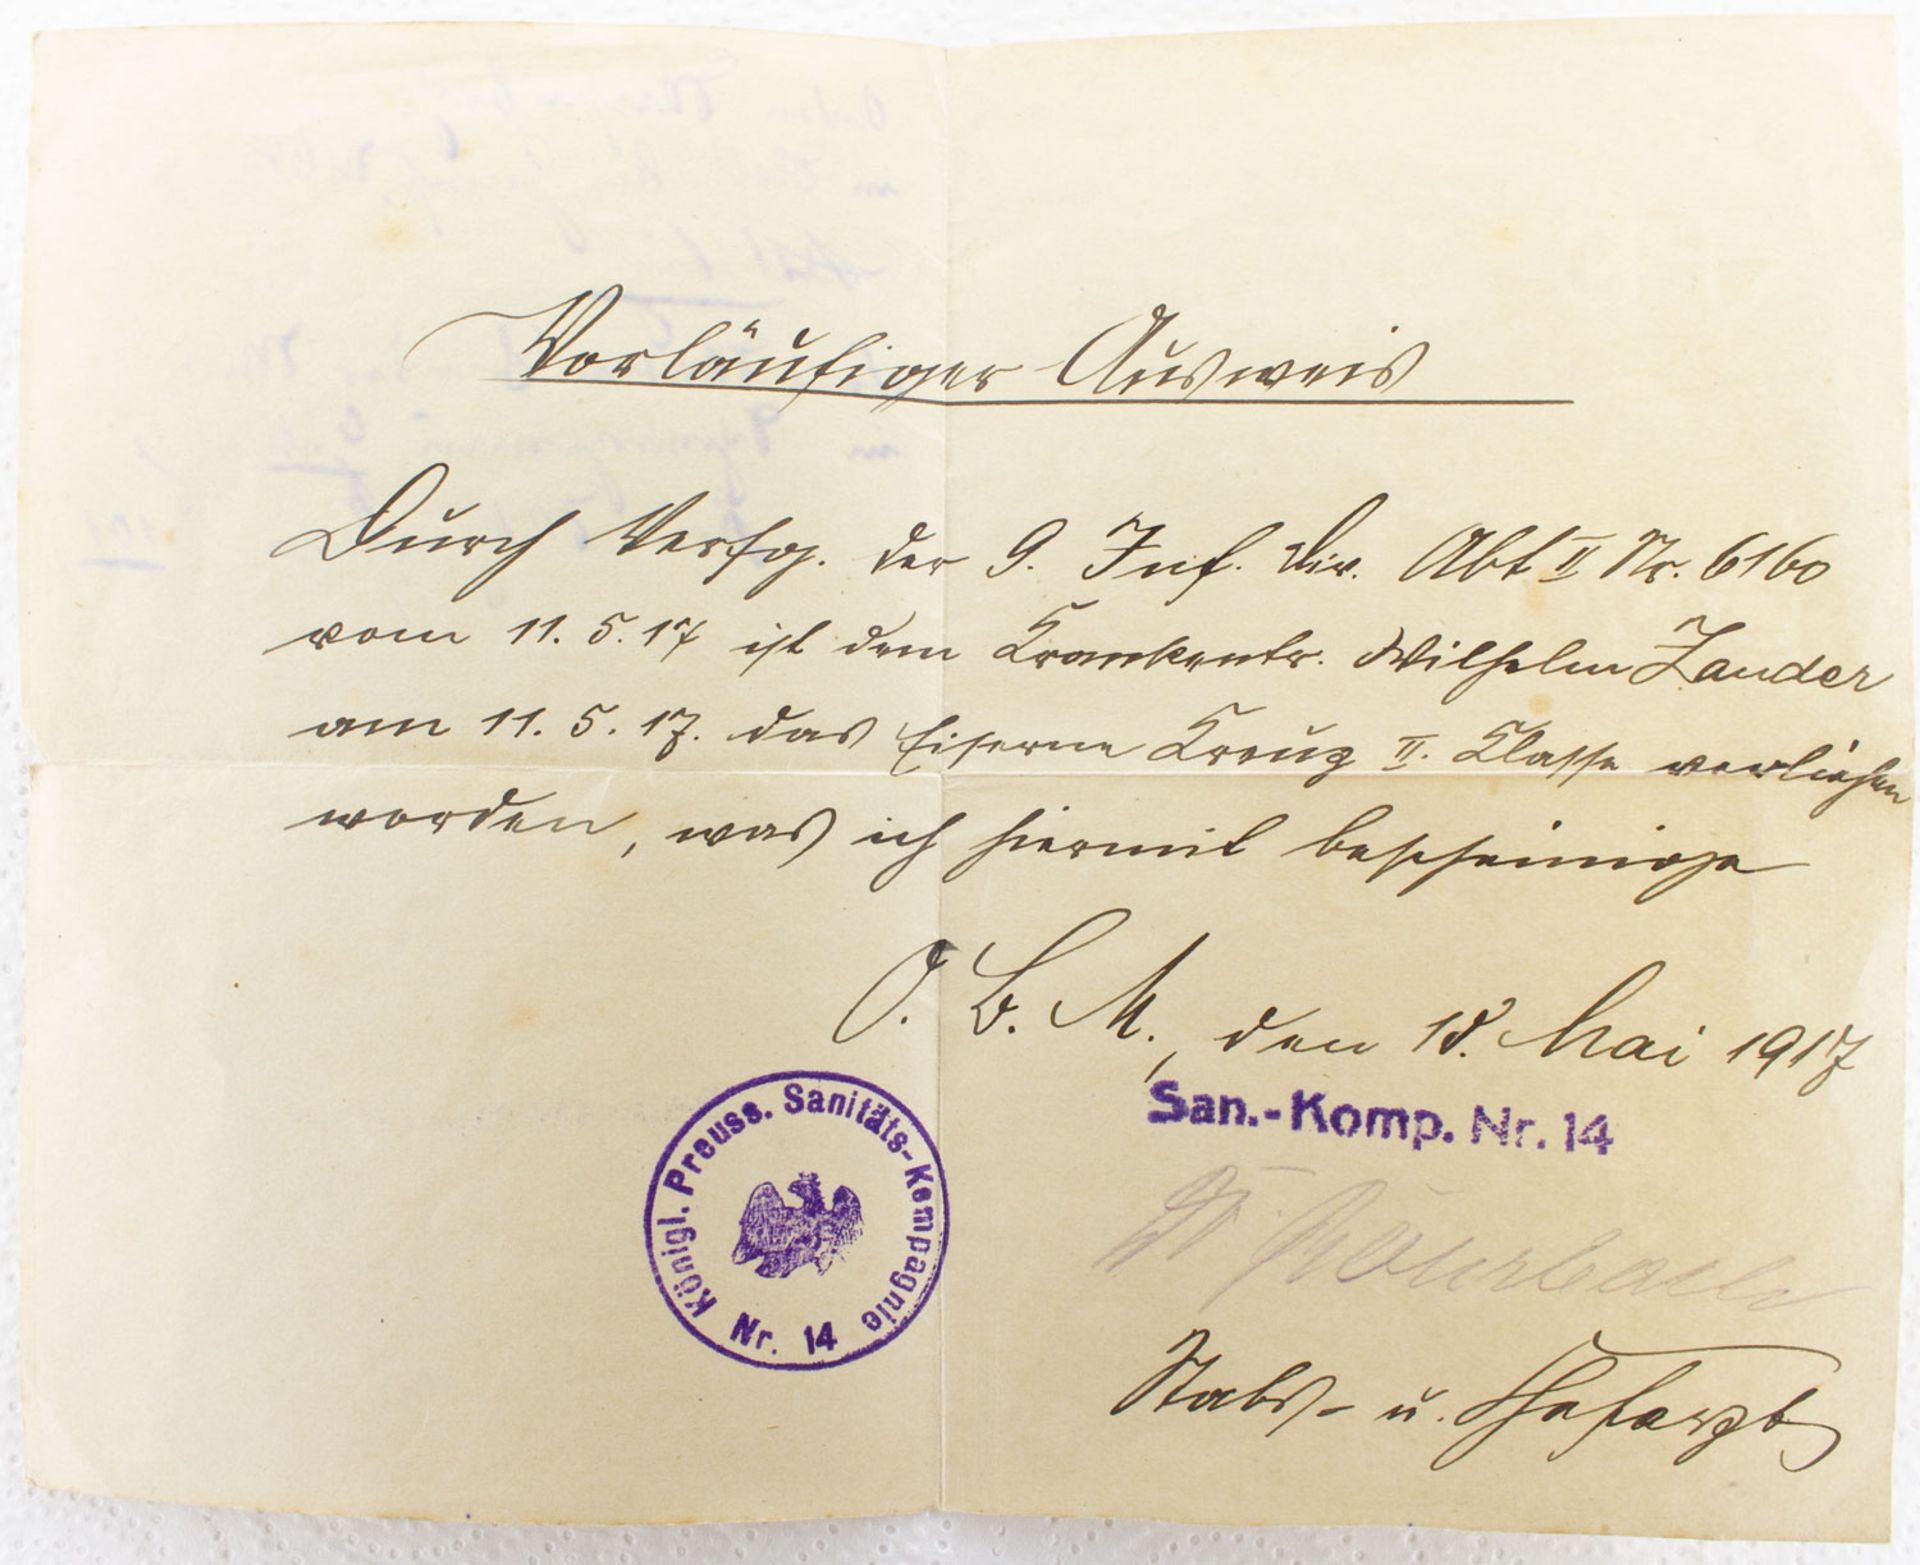 Vorläufiger Ausweis
Durch Verfg. der 9. Inf. Div. Abt II Nr. 6160
vom 11. 5. 17 ist dem Krankentr. Wilhelm Zander
am 11. 5. 17. das Eiserne Kreuz II. Klasse verliehen
worden, was ich hiermit bescheinige
O. B. M., den 18. Mai 1917
San.-Komp. Nr. 14
Königl. Preuss. Sanitäts-Kompagnie
Nr. 14
Dr
Stabs- u. Chefarzt